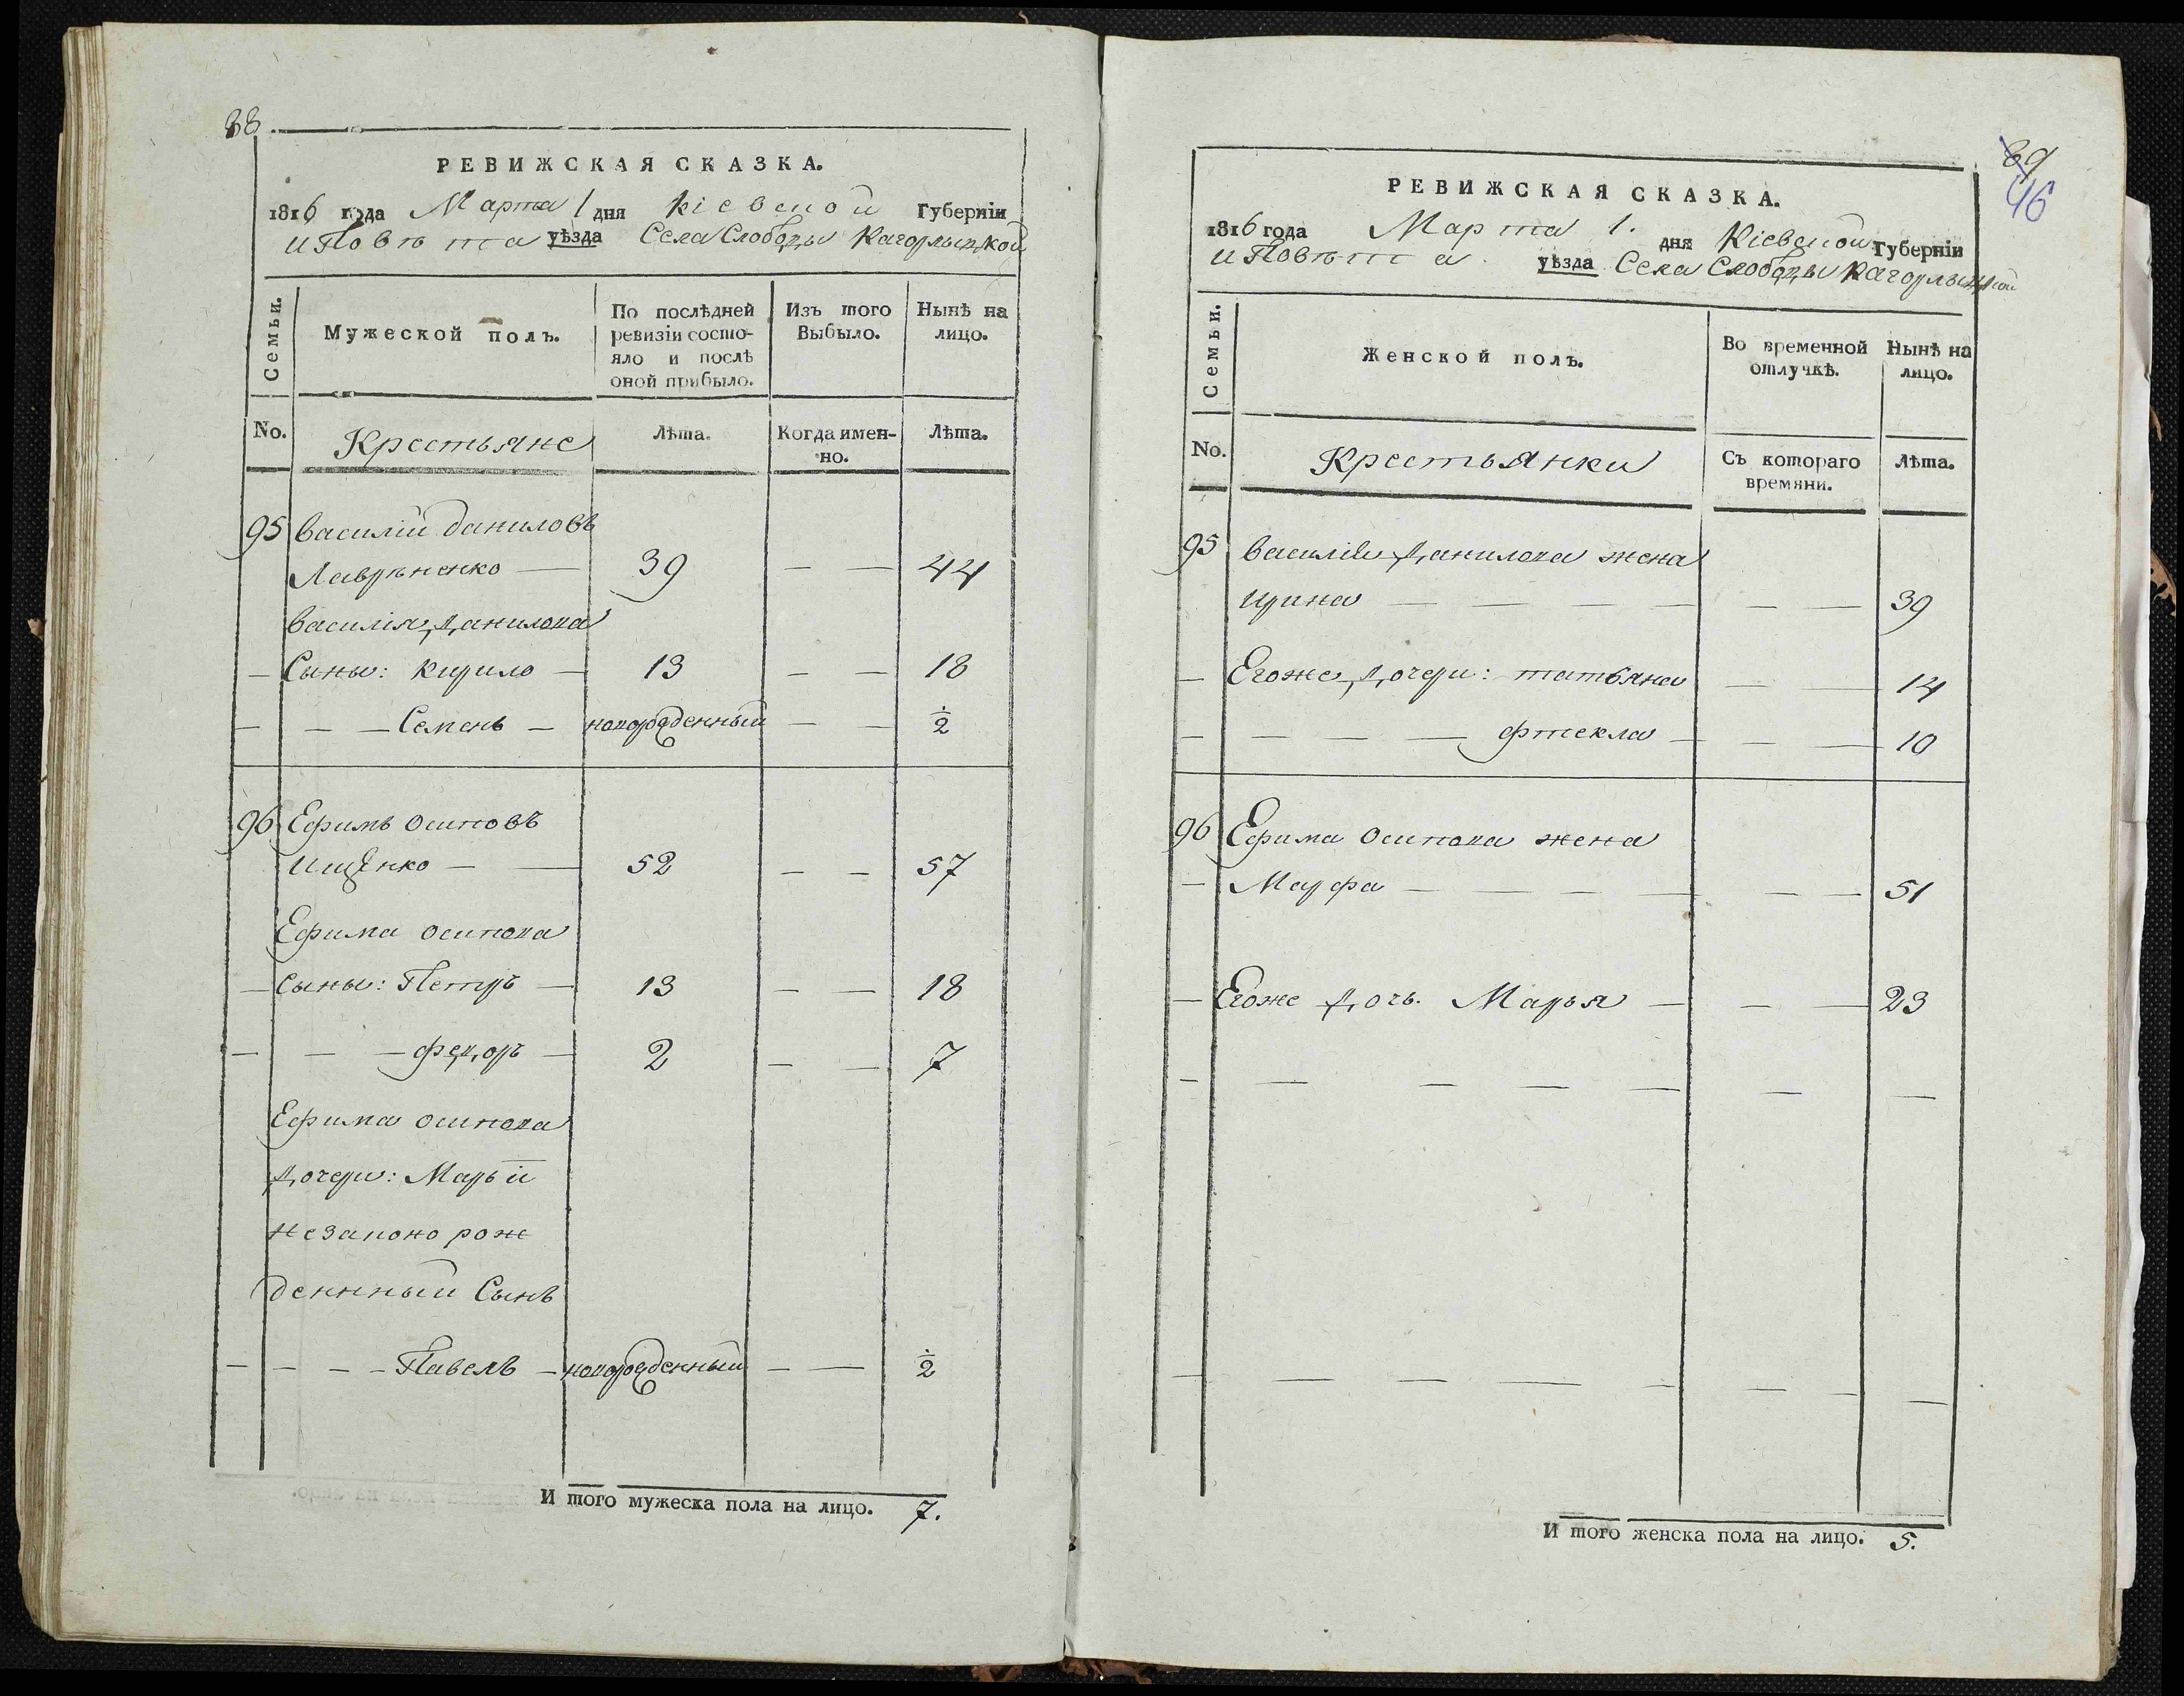 88.
РЕВИЖСКАЯ СКАЗКА.
1816 года Марта 1 дня Кіевской Губерніи
и Повѣта уѣзда Села Слободы Кагорлыцкой
Семьи.
Мужеской полъ.
По послѣдней ревизіи состо-
яло и послѣ
оной прибыло.
Изъ того Выбыло.
Нынѣ на лицо.
No.
Крестьяне
Лѣта.
Когда имен-
но.
Лѣта.
95 василій даниловъ
Лаврѣненко — 39 — — 44
василія данилова
— Сыны: кирило — 13 — — 18
— — — Семенъ — новорожденный — — ½
96 Ефимъ осиповъ
Ищенко — — 52 — — 57
Ефима осипова
— сыны: Петръ — 13 — — 18
— — — федоръ — 2 — — 7
Ефима осипова
дочери: Марьи
незаконо рож
денный Сынъ
— — — Павелъ — новорожденный — — ½
И того мужеска пола на лицо. 7.
89
46
РЕВИЖСКАЯ СКАЗКА.
1816 года Марта 1. дня Кіевской Губерніи
и Повѣта уѣзда Села Слободы Кагорлыцкой
Семьи.
Женской полъ.
Во временной
отлучкѣ.
Нынѣ на
лицо.
No.
Крестьянки
Съ котораго
времяни.
Лѣта.
95 василія данилова жена
ирина — — — — — — 39
— Егоже дочери: татьяна — — 14
— — — — — фтекла — — — 10
96 Ефима осипова жена
— Марфа — — — — — — 51
— Егоже дочь. Марья — — — 23
— — — — — — —
— — — — — — — —
И того женска пола на лицо. 5.